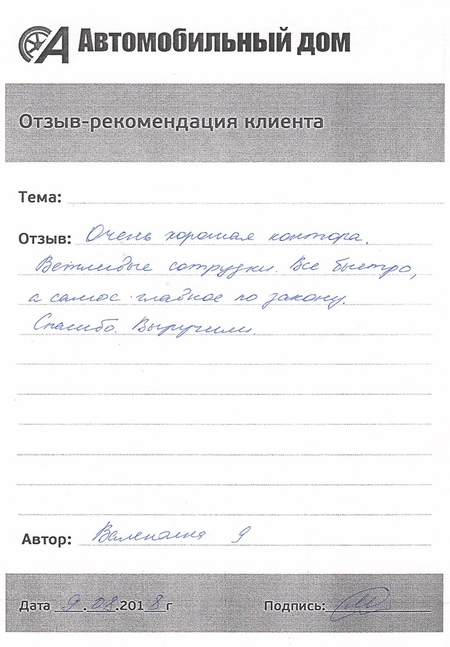 Автомобильный дом
Отзыв-рекомендация клиента
Тема:
Отзыв: Очень хорошая контора.
Ветливые сотрудки. Все быстро,
а самое главное по закону.
Спасибо. Выручили.
Автор: Валентина Я
Дата 9.08.2018 г Подпись: